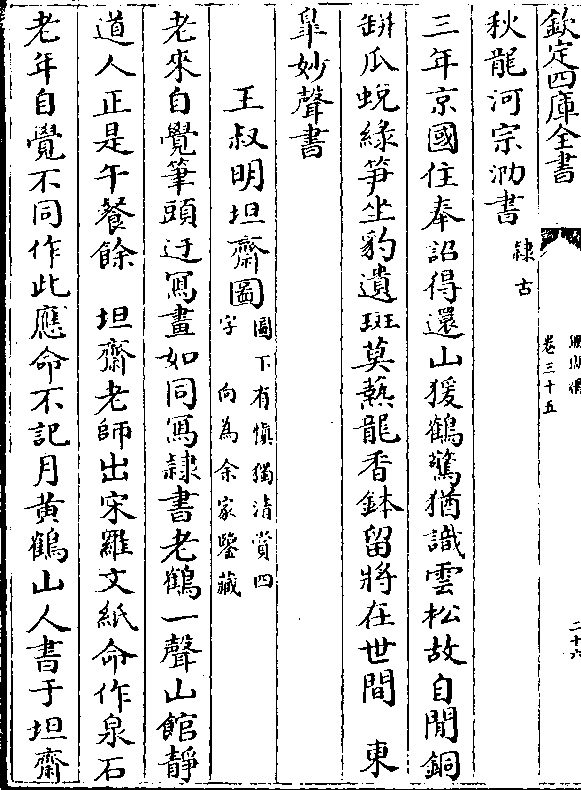 欽定四庫全書
卷三十五
二十六
秋龍河宗泐書 隸古
三年京國住奉詔得還山猨鶴驚猶識雲松故自閒銅
缾瓜蛻緑笋坐豹遺斑莫爇龍香鉢留將在世間 東
臯妙聲書
王叔明坦齋圖 圖下有慎獨清賞四字 向為余家鑒藏
老來自覺筆頭迂冩畫如同冩隷書老鶴一聲山館靜
道人正是午餐餘 坦齋老師出宋羅文紙命作泉石
老年自覺不同作此應命不記月黄鶴山人書于坦齋